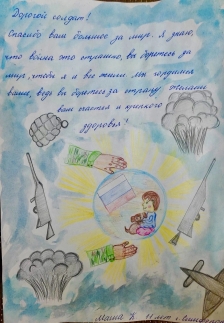 Дорогой солдат!
Спасибо вам большое за мир. Я знаю,
что война это страшно, вы боретесь за
мир, чтобы я и все жили. Мы гордимся
вами, ведь вы боретесь за страну. Желаю
вам счастья и крепкого
здоровья!
Маша К. лет